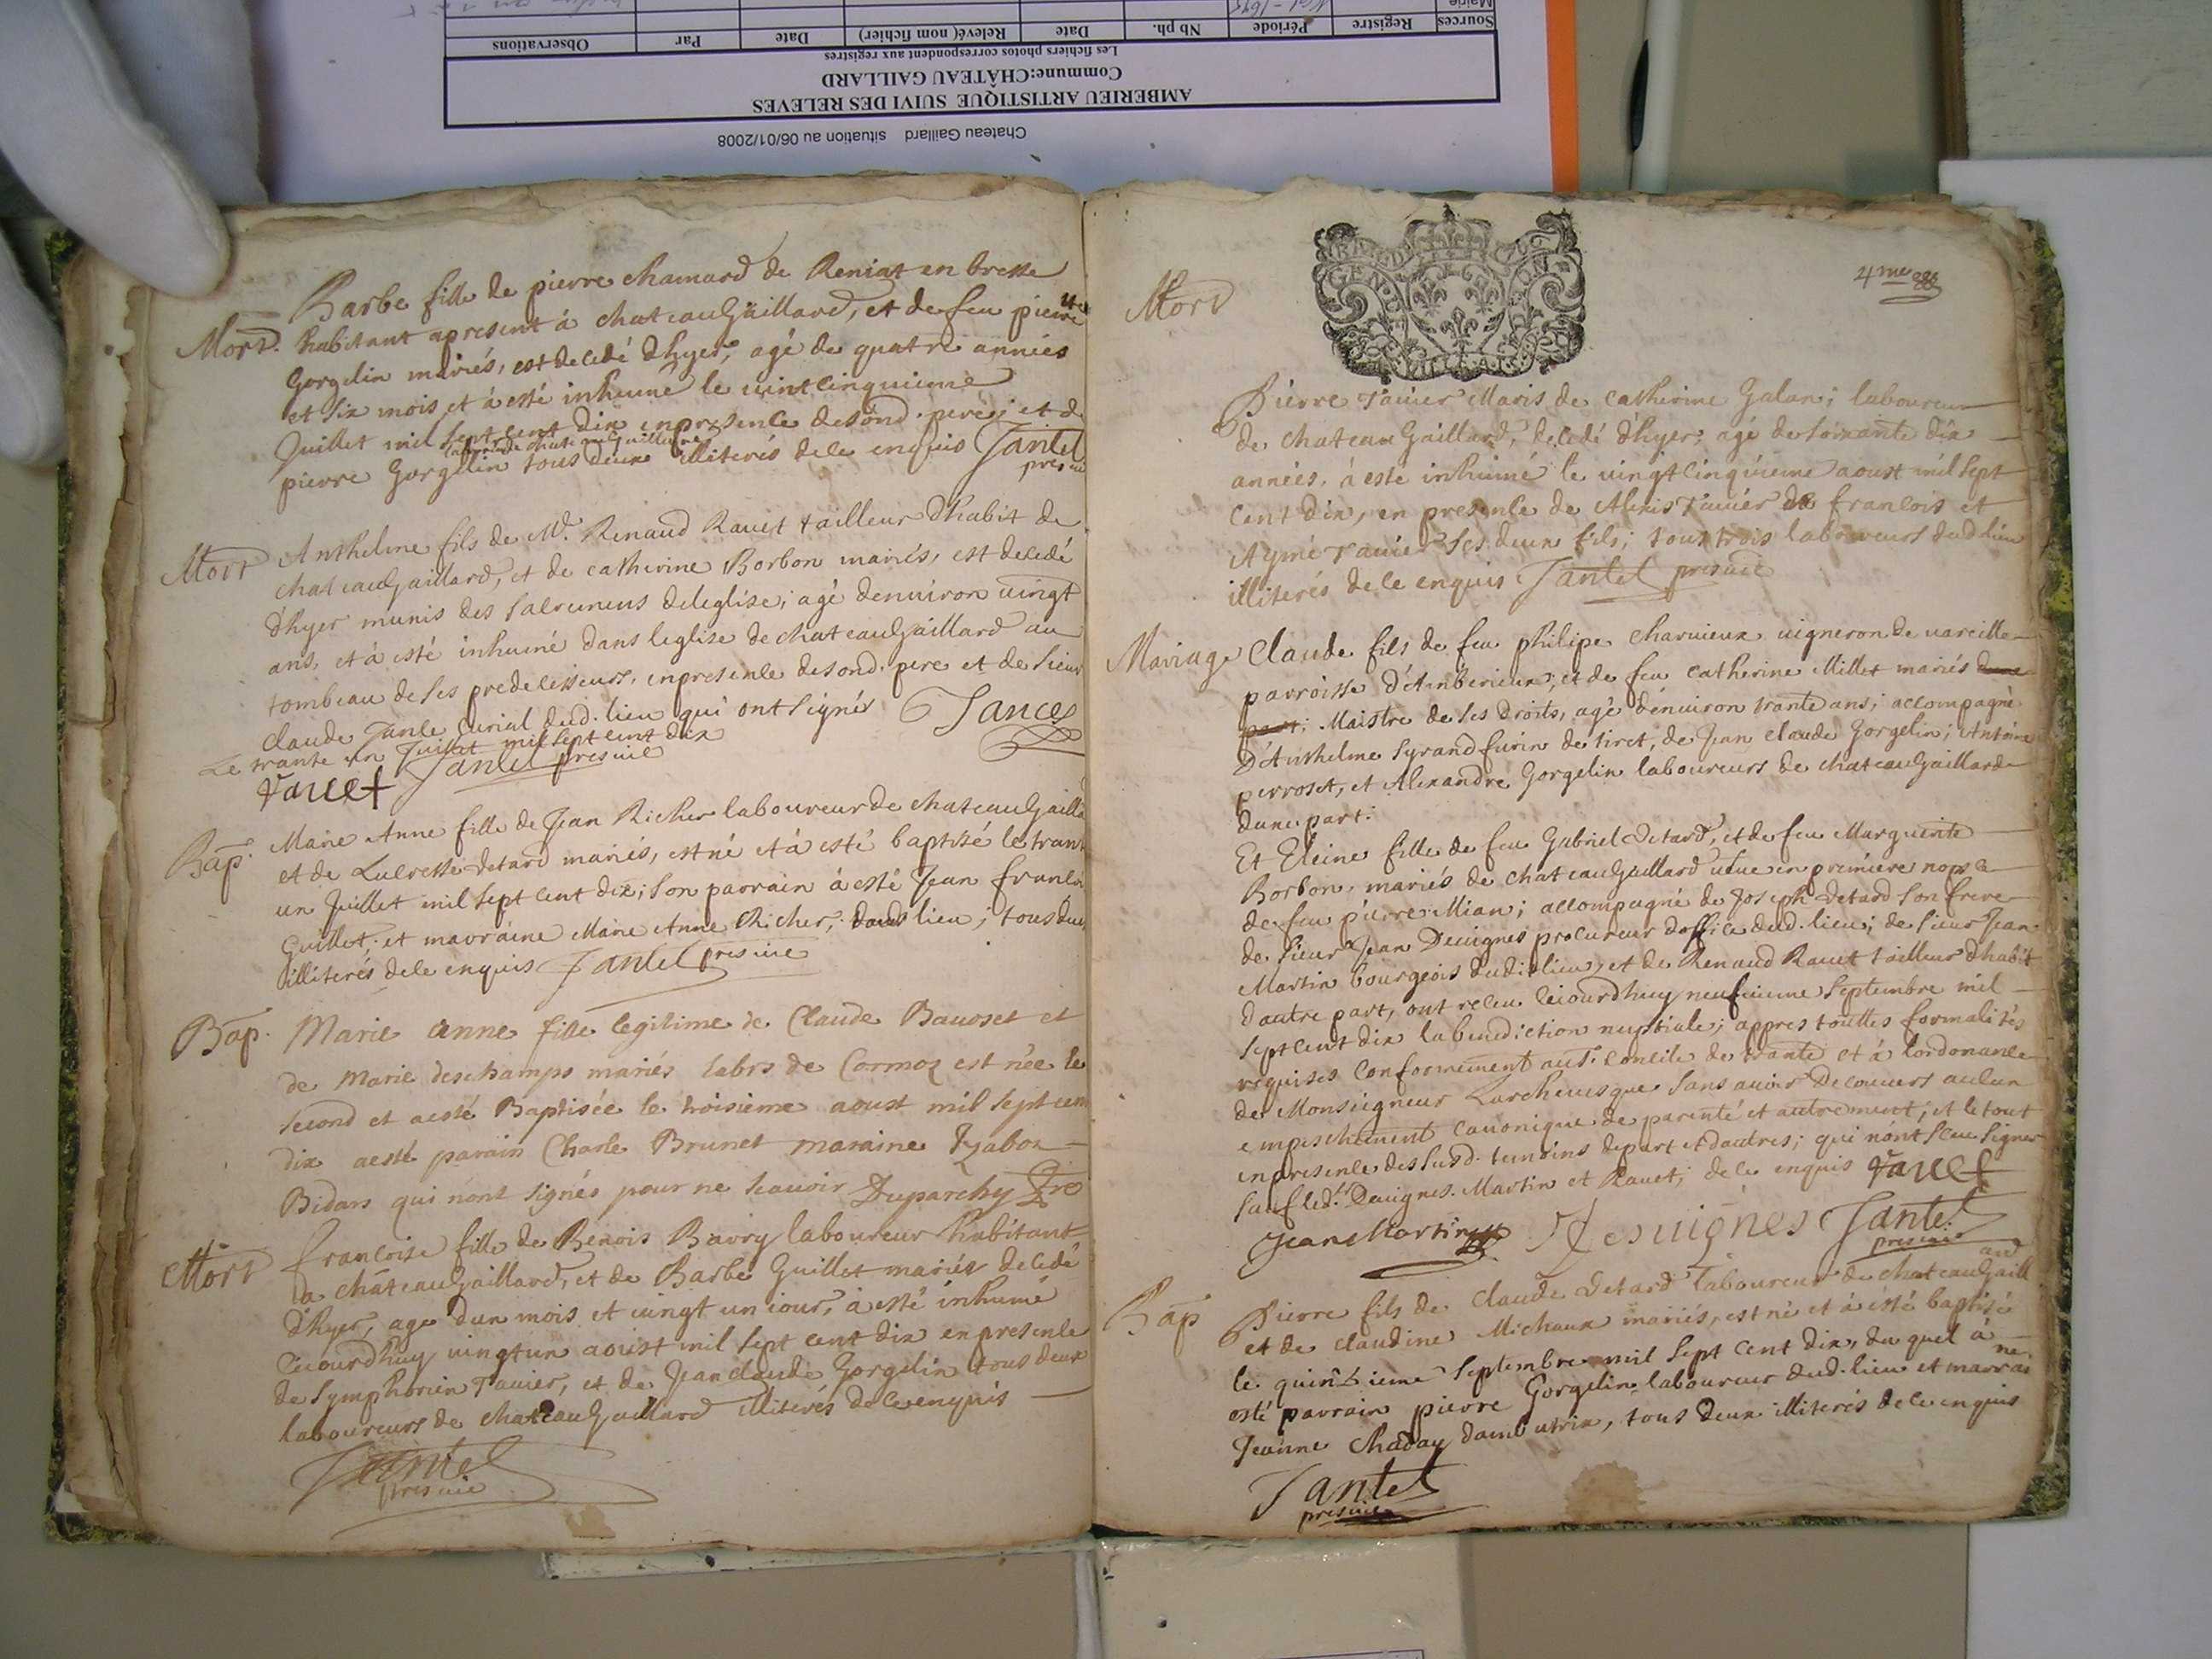 Sources Registre Période Nb ph. Date Relevé( nom fichier) Date Par Observations
Les fichiers photos correspondent aux registres
Commune:CHÂTEAU GAILLARD
AMBERIEU ARTISTIQUE SUIVI DES RELEVES
Chateau Gaillard situation au 06/01/2008
Barbe fille de pierre chamard de Reniat en bresse
Mort. habitant apresent á chateauGaillard, et de feu pierrette
Gorgelin mariés, est decedé dhyer, agé de quatre années
et six mois et á esté inhumé le vint cinquieme
Juillet mil sept cent dix en presence de sond. pere; et de
laboureur de chateauGaillard
pierre Gorgelin tous deux illiterés de ce enquis Jantet
pres vic
Mort Anthelme fils de Mr. Renaud Ravet tailleur dhabit de
chateauGaillard, et de catherine Borbon mariés, est decedé
dhyer munis des sacremens deleglise; agé denuiron vingt
ans, et á esté inhumé dans leglise de chateauGaillard au
tombeau de ses predecesseurs, en presence de sond. pere et de sieur
claude Jance Curial dud. lieu qui ont signés Jance
Le trante un Juillet mil sept cent dix
Ravet Jantet pres vic
Bap. Marie Anne fille de Jean Richer laboureur de chateauGailla
et de Lucresse detard mariés, est né et á esté baptisé le trant
un Juillet mil sept cent dix; son parrain á esté Jean francoi
Guillet; et marraine Marie Anne Richer, dud lieu; tous deux
illiterés de ce enquis Jantet pres vic
Bap. Marie anne fille legitime de Claude Bauoset et
de Marie deschamps mariés labrs de Cormoz est née le
second et aesté Baptisée le troisieme aoust mil sept cen
dix aesté parain Charle Brunet maraine Yzabox
Bidars qui nont signés pour ne scauoir Duparchy Pre
Mort francoise fille de Benois Bavry laboureur habitant
a chateauGaillard, et de Barbe Guillet mariés decedé
dhyer, age dun mois et vingt un iour, á esté inhumé
Ceiourdhuy vingt un aoust mil sept cent dix en presence
de Symphorien Tauier, et de Jean claude Gorgelin tous deux
laboureurs de chateauGaillard illiterés de ce enquis
Jantet
pres vic
Mort
GEN. DE
4me
Pierre Tauier Maris de catherine Galan; laboureur
de chateauGaillard, decedé dhyer; agé de soixante dix
années, á esté inhumé le vingt cinquieme aoust mil sept
cent dix, en presence de Alexis Tauier de francois et
Aymé Tauier ses deux fils; tous trois laboureurs dud lieu
illiterés de ce enquis Jantet pres vic
Mariage Claude fils de feu philipe Charuieux vigneron de vareille
parroisse d'Amberieux, et de feu catherine Millet mariés dune
part; Maistre de ses Droits, agé denuiron trante ans; accompagné
d'Anthelme Syrand furin de tiret, de Jean claude Gorgelin; Antoine
perroset, et Alexandre Gorgelin laboureurs de chateauGaillard
dune part:
Et Eleine fille de feu Gabriel Detard, et de feu Marguerite
Borbon mariés de chateauGaillard veue en premiere nopce
de feu pierre Mian; accompagné de Joseph Detard son frere
de sieur Jean Deuignes procureur doffice dud. lieu; de sieur Jean
Martin bourgeois dudit lieu, et de Renaud Ravet tailleur dhabit
dautre part, ont receu ceiourdhuy neufuieme Septembre mil
sept cent dix la benediction nuptiale; appres touttes formalités
requises conformement au St. concile de trante et á lordonance
de Monseigneur Larcheuesque sans auoir decouuers aulcun
empeschement canonique de parenté et autrement; et le tout
en presence des susd. temoins de part et dautres; qui nont sceu signer
sauf led. srs Deuignes. Martin et Rauet; de ce enquis Ravet
Jean Martin Desuignes Jantet
pres vic
Bap Pierre fils de claude Detard laboureur de chateauGaillard
et de claudine Michaux mariés, est né et á esté baptisée
le quinzieme Septembre mil sept cent dix, du quel á
esté parrain pierre Gorgelin laboureur dud. lieu et marraine
Jeanne Chaday dambutrix, tous deux illiterés de ce enquis
Jantet
pres vic